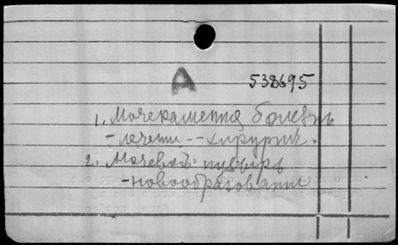 А
538695
1. Мочекаменная болезнь
- лечение -- хирургич.
2. Мочевой пузырь
- новообразования